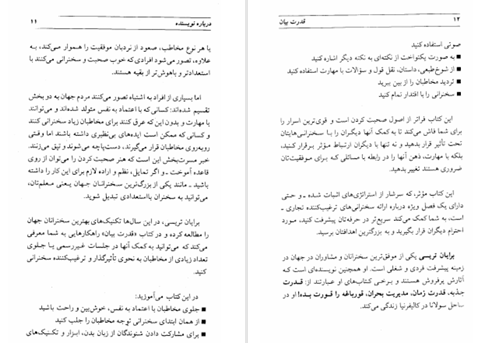 درباره نویسنده ۱۱
با هر نوع مخاطب، صعود از نردبان موفقیت را هموار می‌کند، به
علاوه، تصور می‌شود افرادی که خوب صحبت و سخنرانی می‌کنند با
استعدادتر و باهوش‌تر از بقیه هستند.
اما بسیاری از افراد به اشتباه تصور می‌کنند مردم جهان به دو بخش
تقسیم شده‌اند: کسانی که با اعتماد به نفس متولد شده‌اند و می‌توانند
با مهارت و بدون این که عرق کنند برای مخاطبان زیاد سخنرانی کنند
و کسانی که ممکن است ایده‌های بی‌نظیری داشته باشند اما وقتی
روبه‌روی مخاطبان قرار می‌گیرند، دست‌پاچه می‌شوند و تپق می‌زنند.
خبر مسرت‌بخش این است که هنر صحبت کردن را می‌توان از روی
قاعده آموخت ـ و اگر تمایل، نظم و اراده لازم برای این کار را داشته
باشید ـ مانند یکی از بزرگ‌ترین سخنرانان جهان یعنی معلم‌تان،
می‌توانید به سخنران بااستعدادی تبدیل شوید.
برایان تریسی، در این سال‌ها تکنیک‌های بهترین سخنرانان جهان
را مطالعه کرده و در کتاب «قدرت بیان» راهکارهایی به شما معرفی
می‌کند که می‌توانید به کمک آنها در جلسات غیررسمی یا جلوی
تعداد زیادی از مخاطبان به نحوی تأثیرگذار و ترغیب‌کننده سخنرانی
کنید.
در این کتاب می‌آموزید:
■ جلوی مخاطبان با اعتماد به نفس، خوش‌بین و راحت باشید
■ از همان ابتدای سخنرانی توجه مخاطبان را جلب کنید
■ برای مشارکت دادن شنوندگان از زبان بدن، ابزار و تکنیک‌های
۱۲ قدرت بیان
صوتی استفاده کنید
■ به صورت یکنواخت از نکته‌ای به نکته دیگر اشاره کنید
■ از شوخ‌طبعی، داستان، نقل قول و سؤالات با مهارت استفاده کنید
■ تردید مخاطبان را از بین ببرید
■ سخنرانی را با اقتدار تمام کنید
این کتاب فراتر از اصول صحبت کردن است و قوی‌ترین اسرار را
برای شما فاش می‌کند تا به کمک آنها دیگران را با سخنرانی‌هایتان
تحت تأثیر قرار بدهید و نه تنها با دیگران ارتباط مؤثر برقرار کنید،
بلکه با مهارت، ذهن آنها را در رابطه با مسائلی که برای موفقیت‌تان
ضروری هستند تغییر بدهید.
این کتاب مؤثر، که سرشار از استراتژی‌های اثبات شده ـ و حتی
دارای یک فصل ویژه درباره ارائه سخنرانی‌های ترغیب‌کننده تجاری ـ
است، به شما کمک می‌کند سریع‌تر در حرفه‌تان پیشرفت کنید، مورد
احترام دیگران قرار بگیرید و به بزرگ‌ترین اهدافتان برسید.
برایان تریسی یکی از موفق‌ترین سخنرانان و مشاوران در جهان در
زمینه پیشرفت فردی و شغلی است. او همچنین نویسنده‌ای است که
آثارش پرفروش هستند و برخی کتاب‌های او عبارتند از: قدرت
جذبه، قدرت زمان، مدیریت بحران، قورباغه را قورت بده! او در
ساحل سولانا در کالیفرنیا زندگی می‌کند.